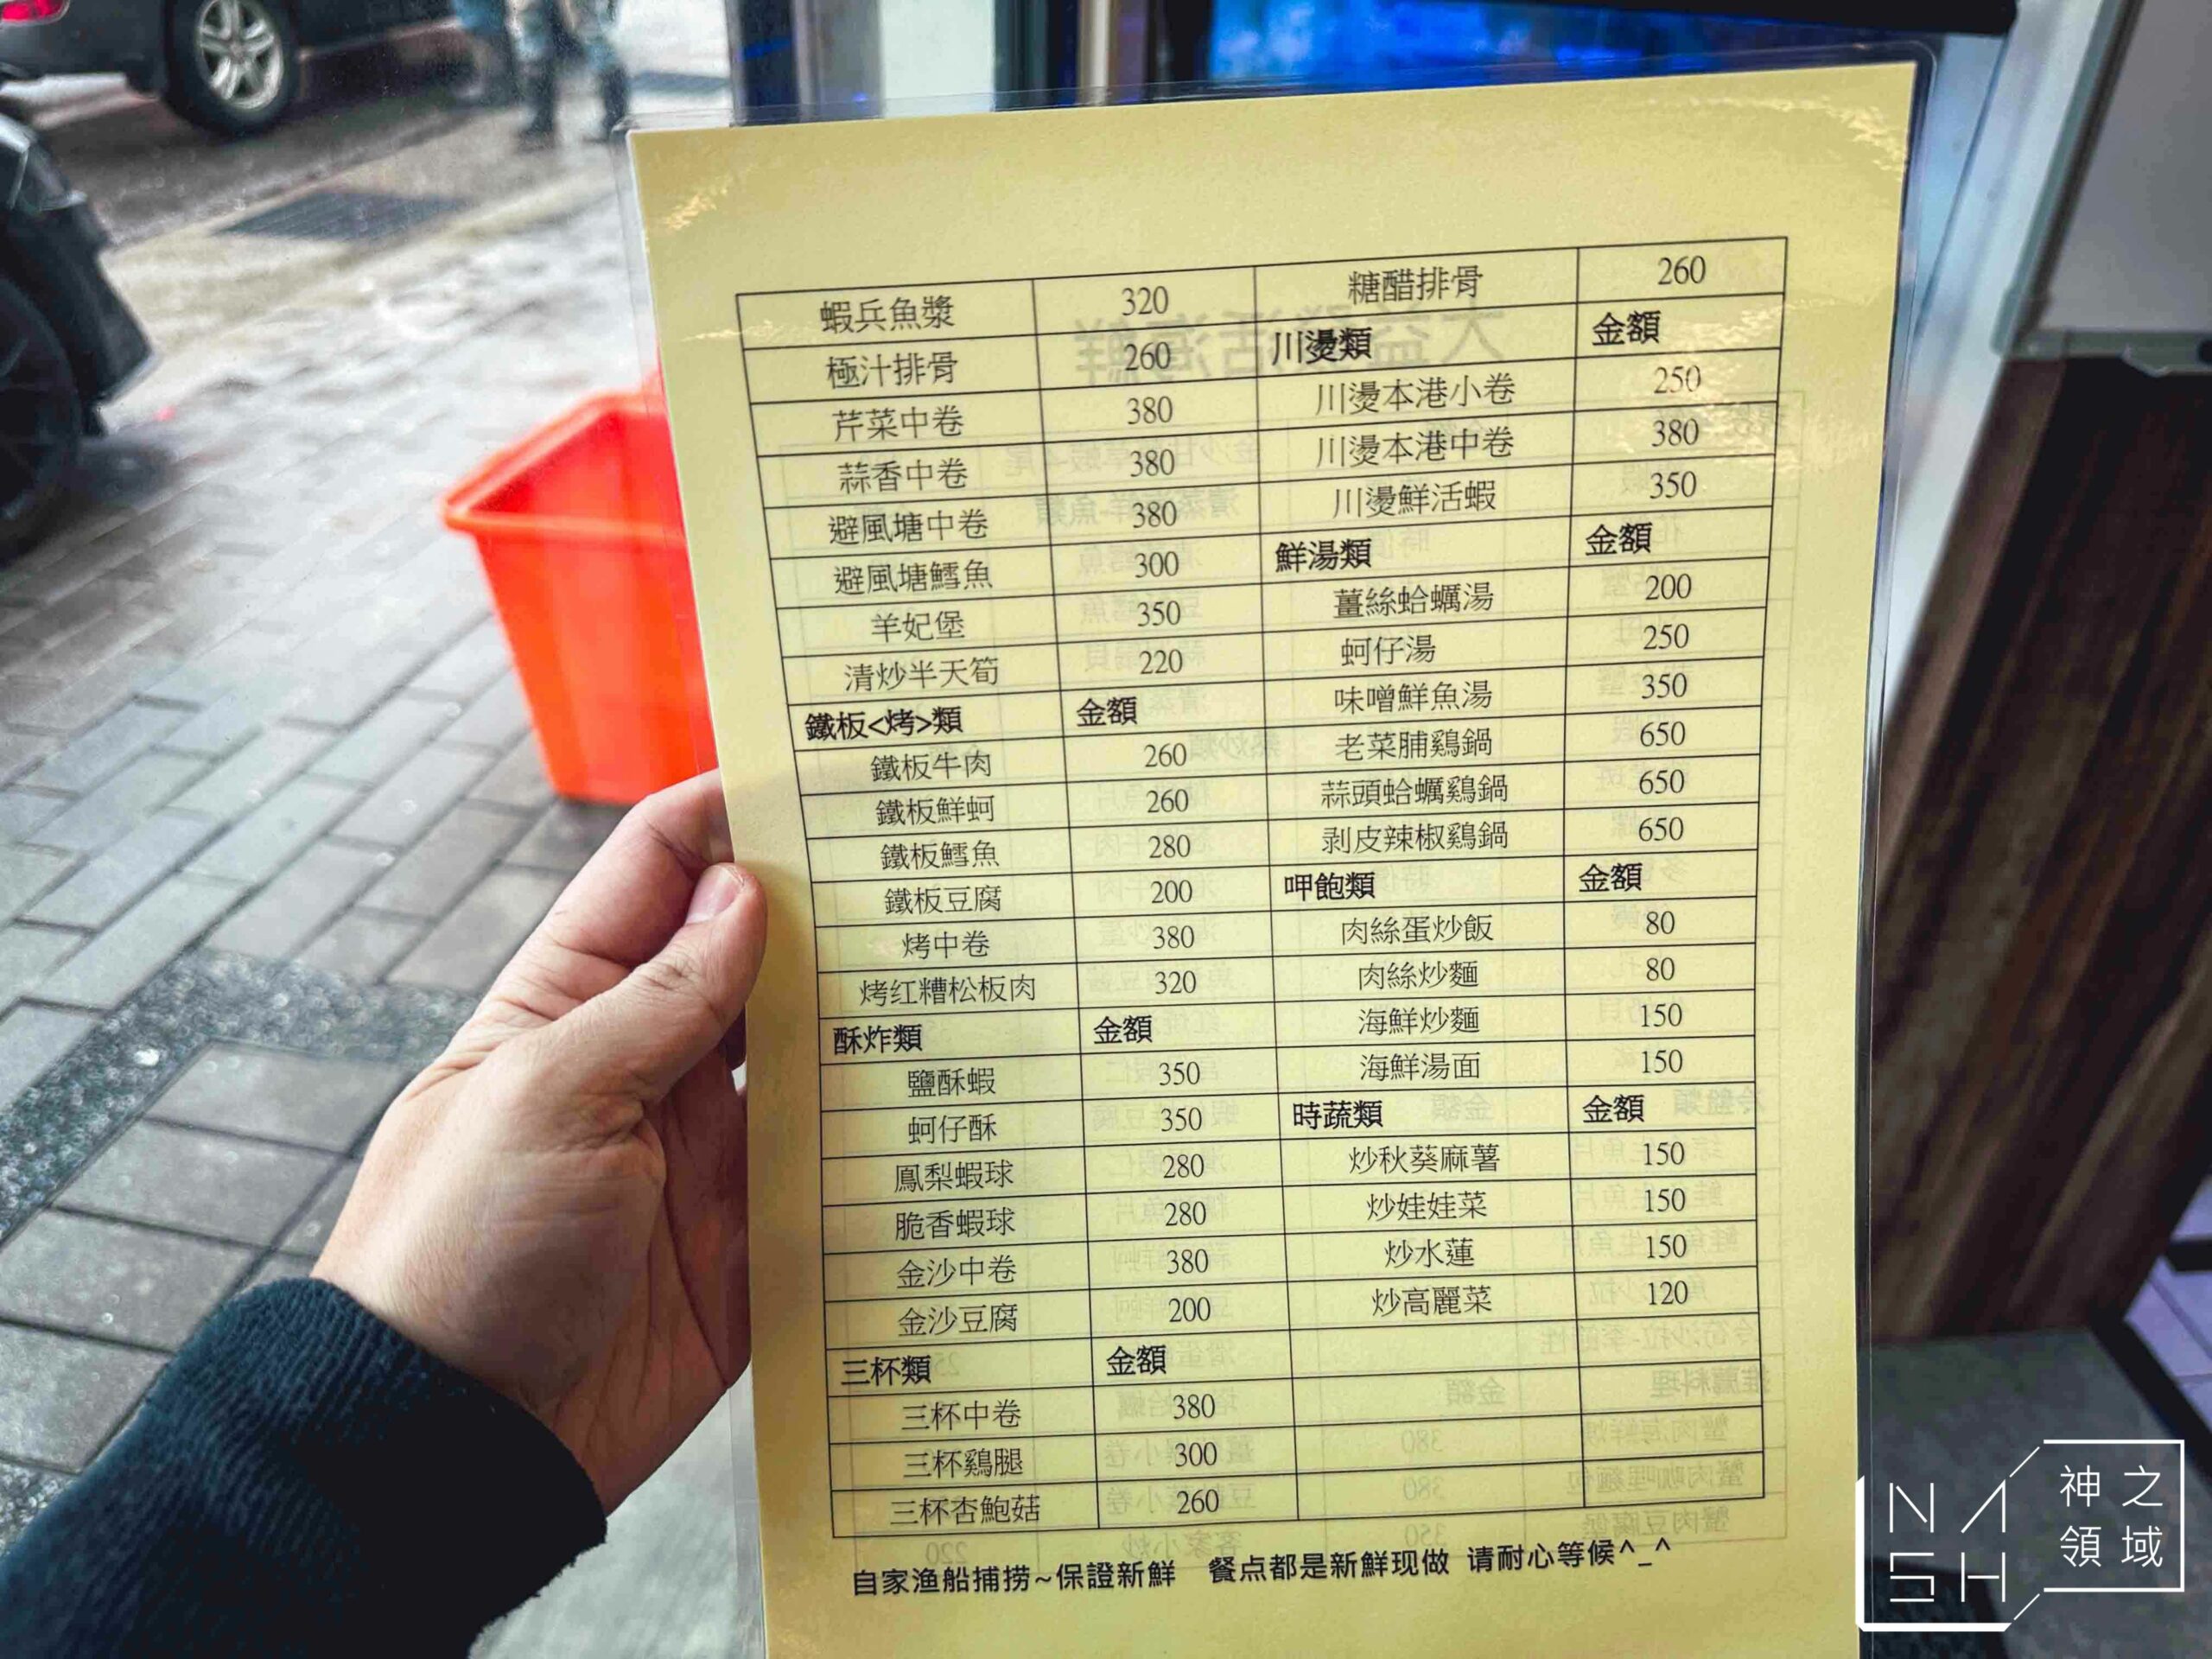 蝦兵魚漿 320 糖醋排骨 260
極汁排骨 260 川燙類 金額
芹菜中卷 380 川燙本港小卷 250
蒜香中卷 380 川燙本港中卷 380
避風塘中卷 380 川燙鮮活蝦 350
避風塘鱈魚 300 鮮湯類 金額
羊妃堡 350 薑絲蛤蠣湯 200
清炒半天筍 220 蚵仔湯 250
鐵板<烤>類 金額 味噌鮮魚湯 350
鐵板牛肉 260 老菜脯鷄鍋 650
鐵板鮮蚵 260 蒜頭蛤蠣鷄鍋 650
鐵板鱈魚 280 剥皮辣椒鷄鍋 650
鐵板豆腐 200 呷飽類 金額
烤中卷 380 肉絲蛋炒飯 80
烤红糟松板肉 320 肉絲炒麵 80
酥炸類 金額 海鮮炒麵 150
鹽酥蝦 350 海鮮湯面 150
蚵仔酥 350 時蔬類 金額
鳳梨蝦球 280 炒秋葵麻薯 150
脆香蝦球 280 炒娃娃菜 150
金沙中卷 380 炒水蓮 150
金沙豆腐 200 炒高麗菜 120
三杯類 金額
三杯中卷 380
三杯鷄腿 300
三杯杏鮑菇 260
自家渔船捕捞~保證新鮮 餐点都是新鮮现做 请耐心等候^_^
NASH 神之領域